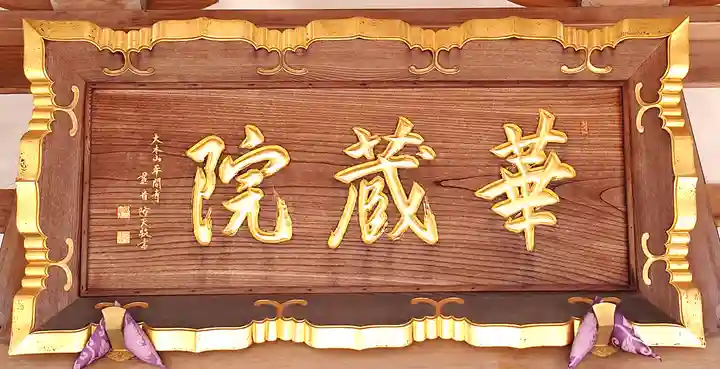 華蔵院
大本山平間寺